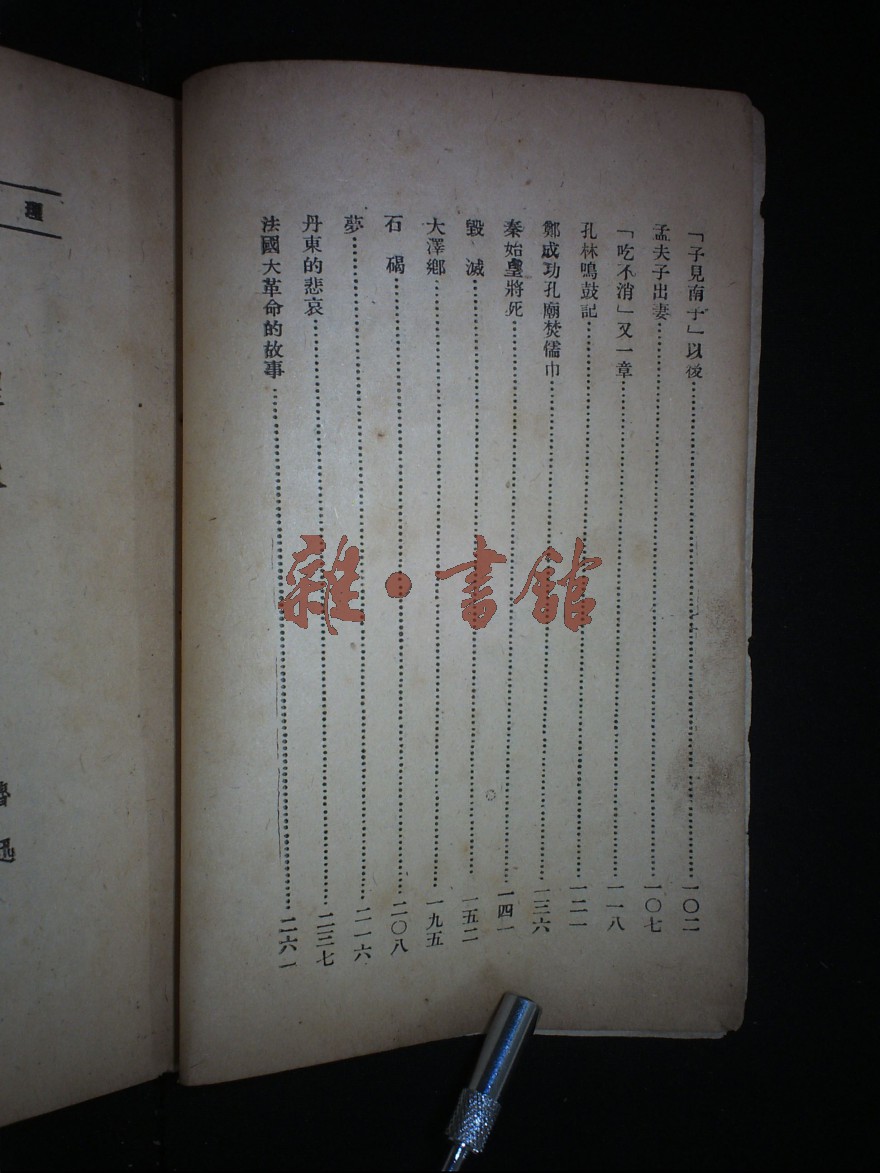 「子見南子」以後 一〇二
孟夫子出妻 一〇七
「吃不消」又一章 一一八
孔林鳴鼓記 一二一
鄭成功孔廟焚儒巾 一三六
秦始皇將死 一四一
毀滅 一五二
大澤鄉 一九五
石碣 二〇八
夢 二一六
丹東的悲哀 二三七
法國大革命的故事 二六一
雜·書館
魯迅